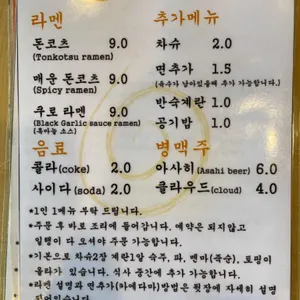 라멘
돈코츠 9.0
(Tonkotsu ramen)
매운 돈코츠 9.0
(Spicy ramen)
쿠로 라멘 9.0
(Black Garlic sauce ramen)
(흑마늘 소스)
음료
콜라(coke) 2.0
사이다(soda) 2.0
추가메뉴
차슈 2.0
면추가 1.5
(육수가 남아있을때 추가 가능합니다.)
반숙계란 1.0
공기밥 1.0
병맥주
아사히(Asahi beer) 6.0
클라우드(cloud) 4.0
*1인 1메뉴 부탁 드립니다.
*주문 후 바로 조리에 들어갑니다. 예약은 되지않고
일행이 다 오셔야 주문 가능합니다.
*기본으로 차슈2장 계란1알 숙주, 파, 멘마(죽순), 토핑이
올라가 있습니다. 식사 중간에 추가 가능합니다.
*라멘 설명과 면추가(카에다마)방법은 뒷장에 자세히 설명
되어있습니다.